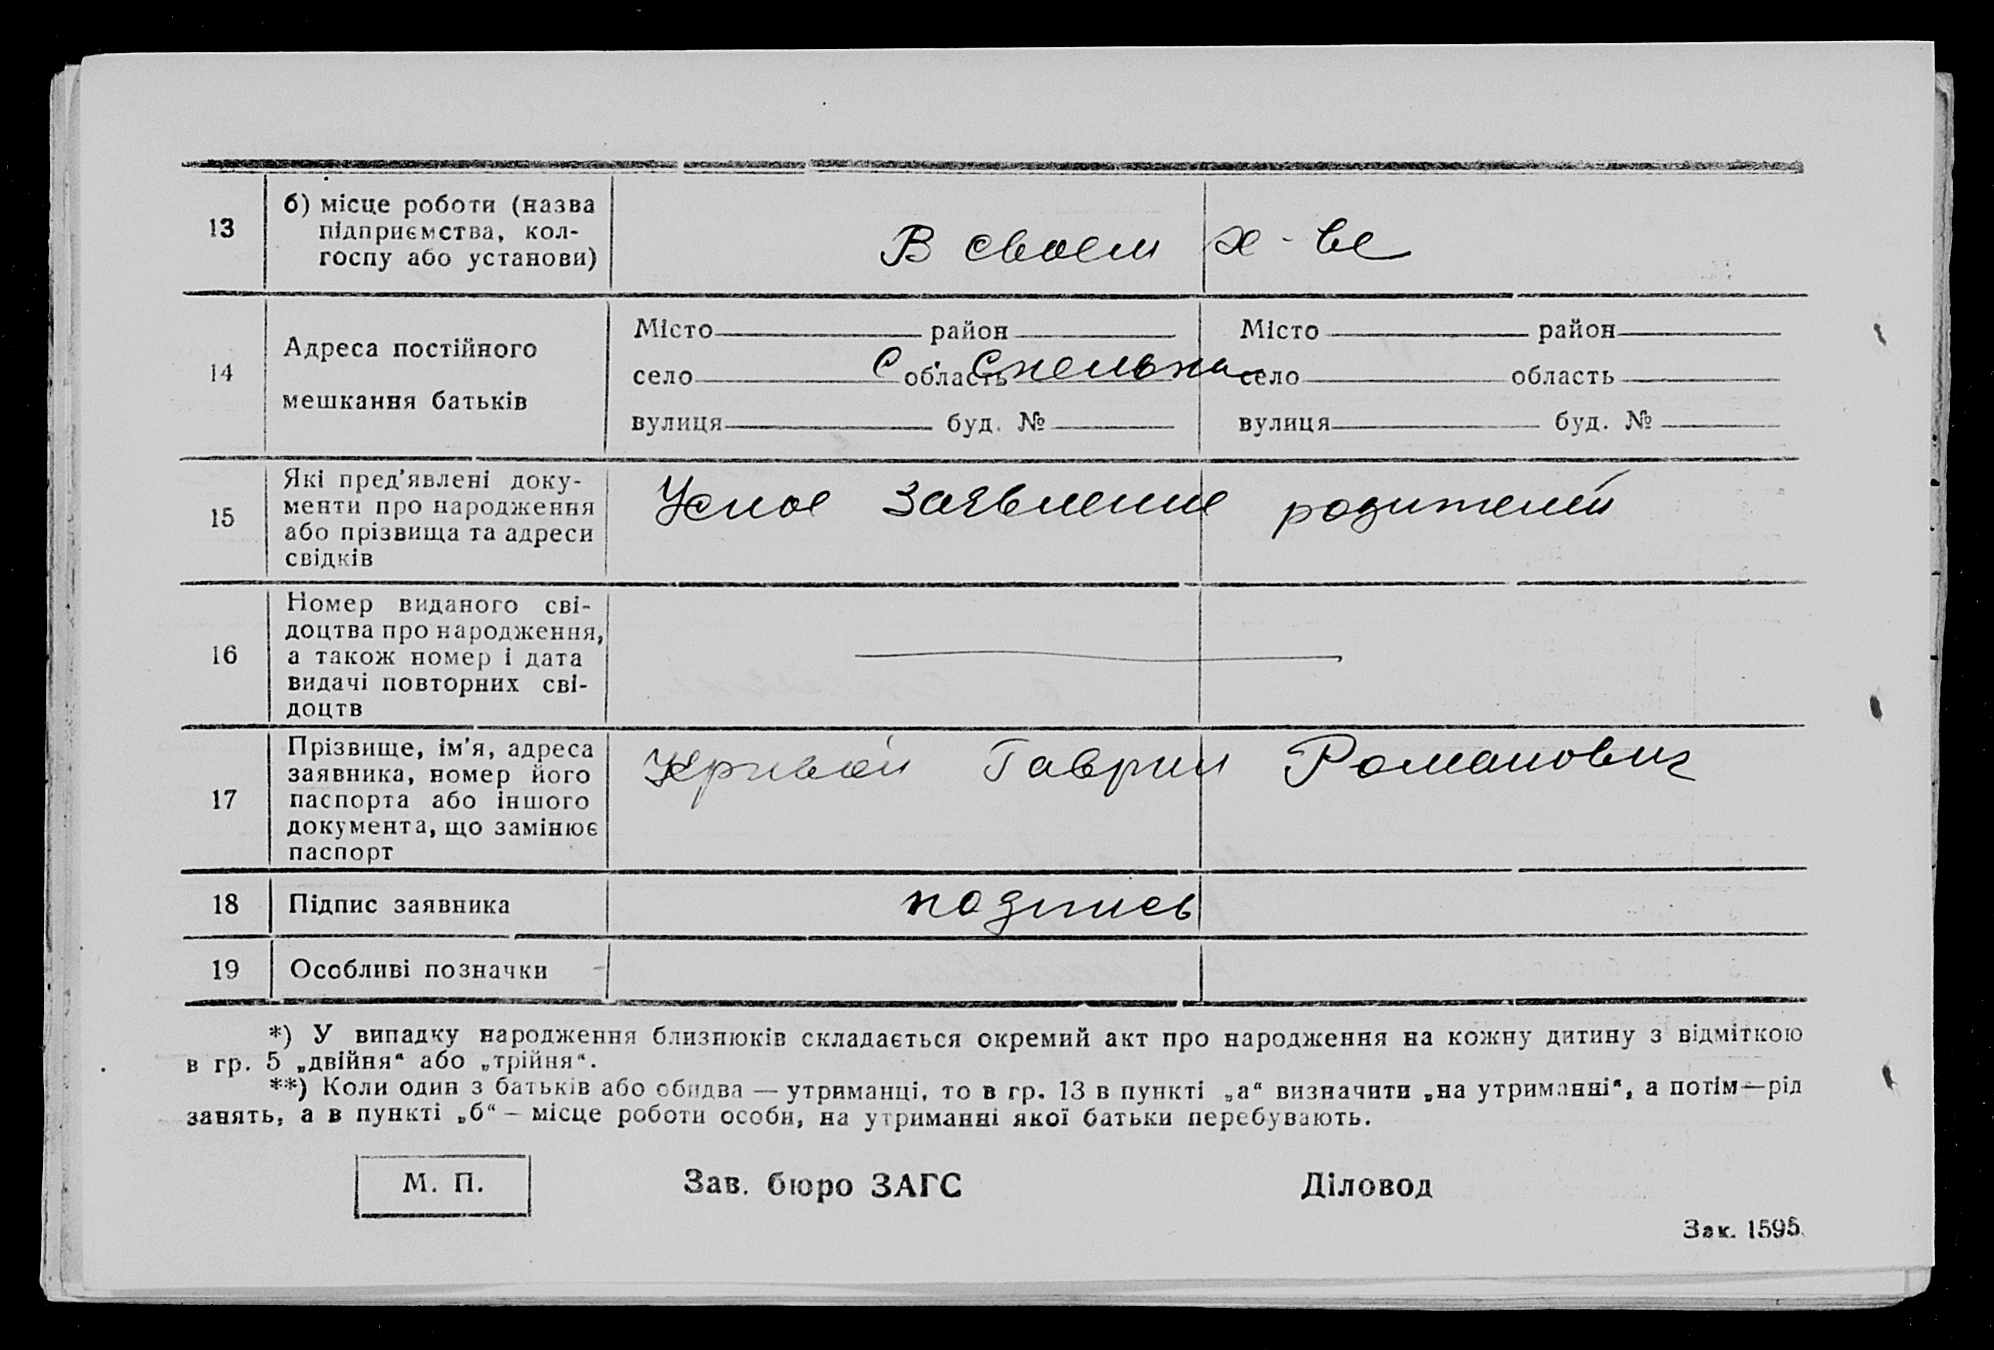 13 б) місце роботи (назва
підприємства, кол-
госпу або установи)
В своем х-ве
14 Адреса постійного
мешкання батьків
Місто район Місто район
село область село область
с. Смельна
вулиця буд. № вулиця буд. №
15 Які пред'явлені доку-
менти про народження
або прізвища та адреси
свідків
Устное заявление родителей
16 Номер виданого сві-
доцтва про народження,
а також номер і дата
видачі повторних сві-
доцтв
17 Прізвище, ім'я, адреса
заявника, номер його
паспорта або іншого
документа, що замінює
паспорт
Кривой Гаврил Романович
18 Підпис заявника подпись
19 Особливі позначки -
*) У випадку народження близнюків складається окремий акт про народження на кожну дитину з відміткою
в гр. 5 „двійня“ або „трійня“.
**) Коли один з батьків або обидва — утриманці, то в гр. 13 в пункті „а“ визначити „на утриманні“, а потім—рід
занять, а в пункті „б“ — місце роботи особи, на утриманні якої батьки перебувають.
М. П. Зав. бюро ЗАГС Діловод
Зак. 1595